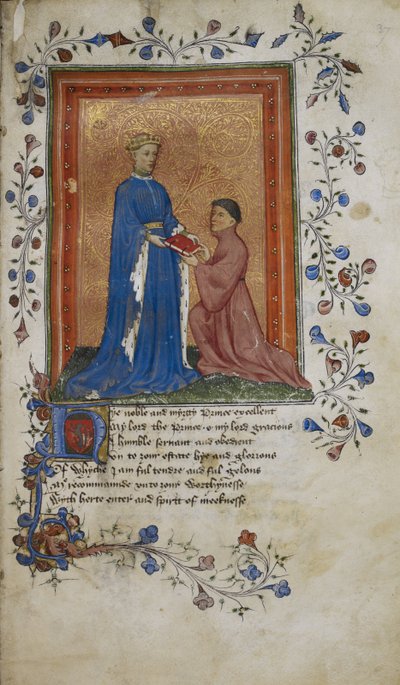 37
Hye noble and myȝty Prince excellent
My lord the Prince o my lord gracious
I humble seruant and obedient
Vn to ȝour estate hye and glorious
Of Whyche I am ful tendre and ful gelous
Me recommaunde vnto ȝour Worthynesse
Wyth herte enter and spirit of meeknesse